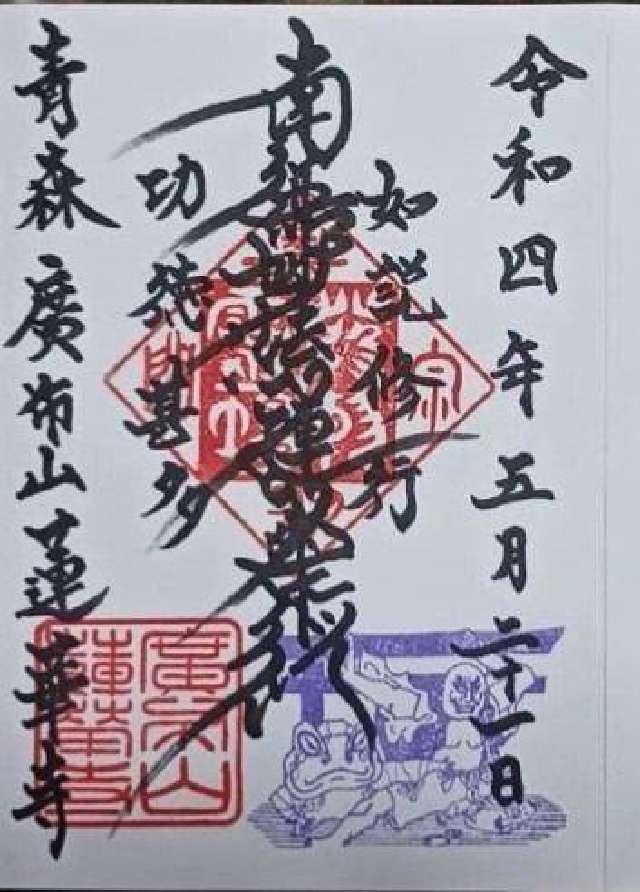 令和四年五月二十一日
如説修行
南無妙法蓮華経
功徳甚多
青森 廣布山 蓮華寺
廣布山
蓮華寺